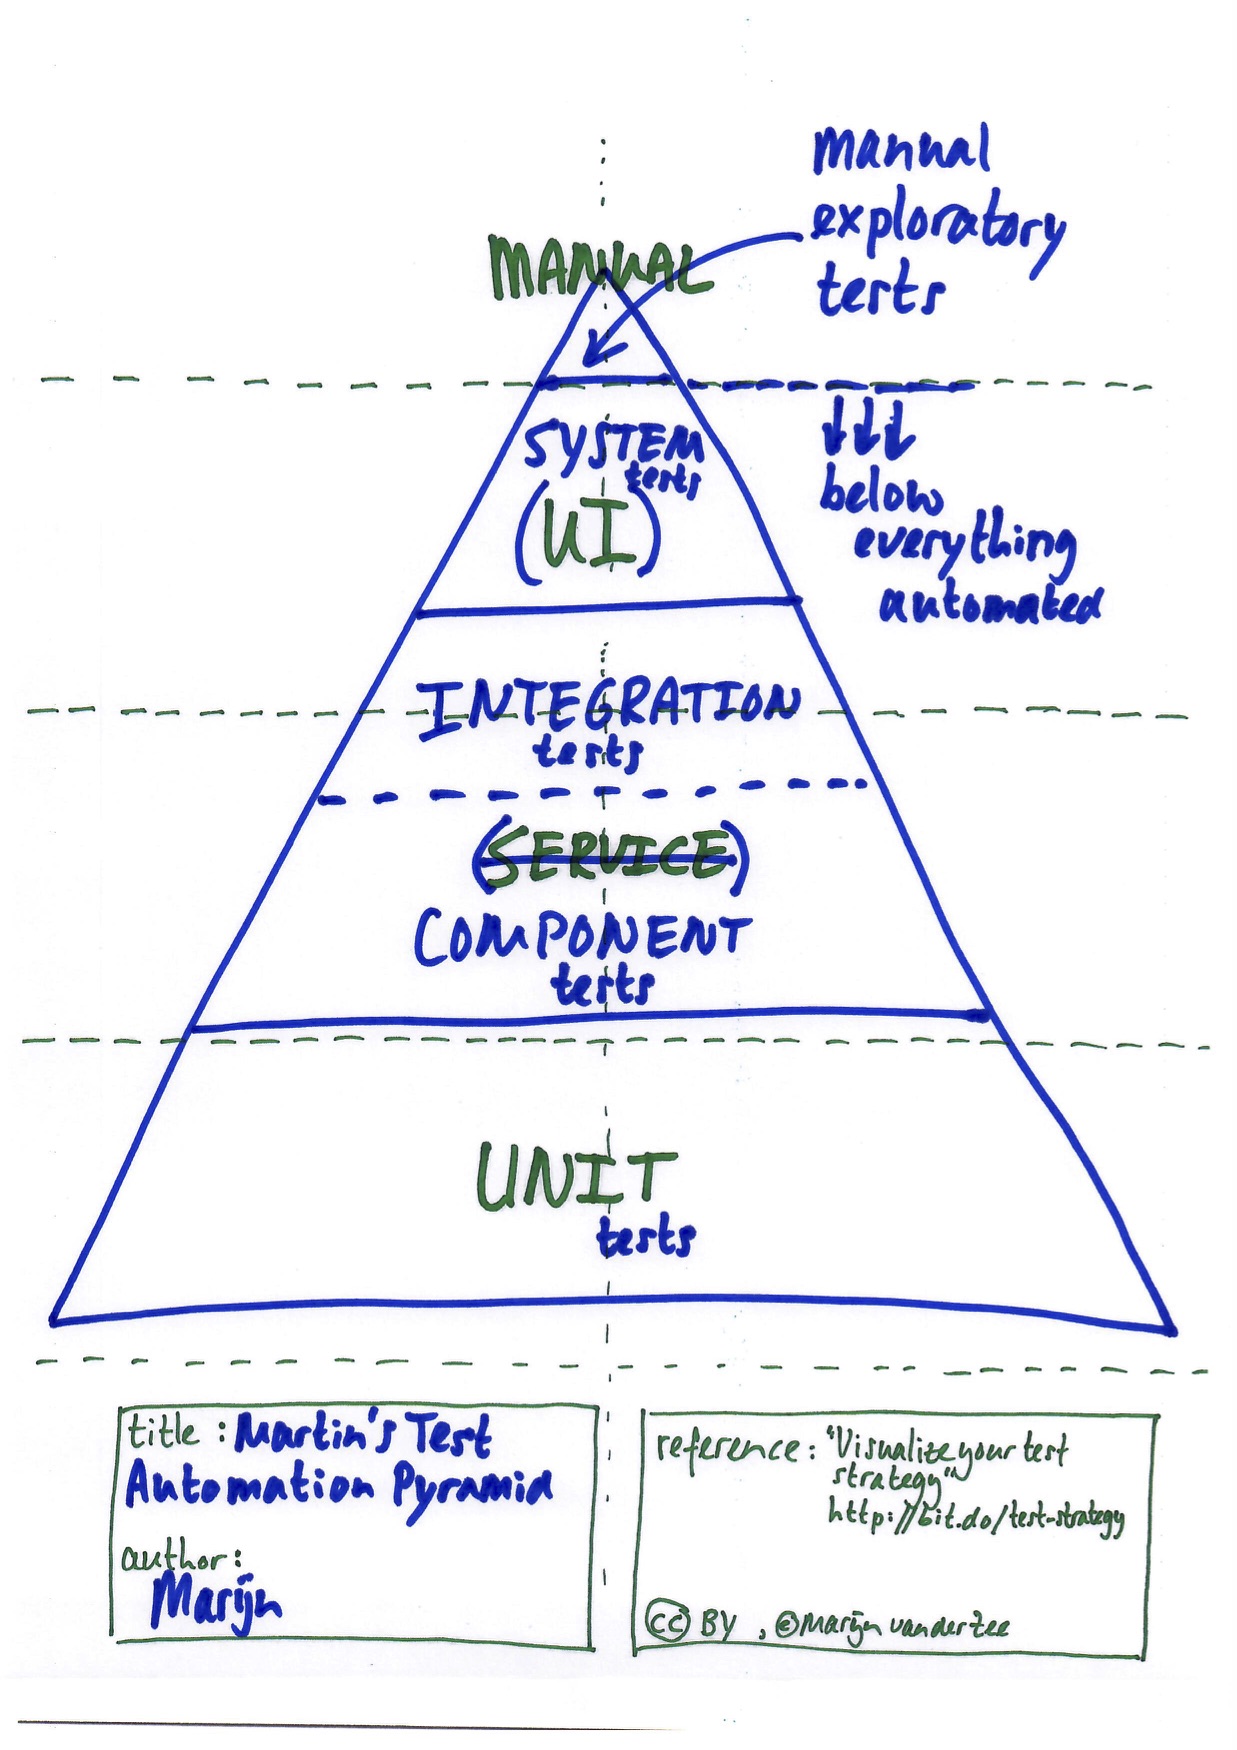 manual
exploratory
tests
MANUAL
SYSTEM
tests
(UI)
below
everything
automated
INTEGRATION
tests
(SERVICE)
COMPONENT
tests
UNIT
tests
title: Martin's Test
Automation Pyramid
author:
Marijn
reference: "Visualize your test
strategy"
http://bit.do/test-strategy
cc BY, @Marijn van der Zee